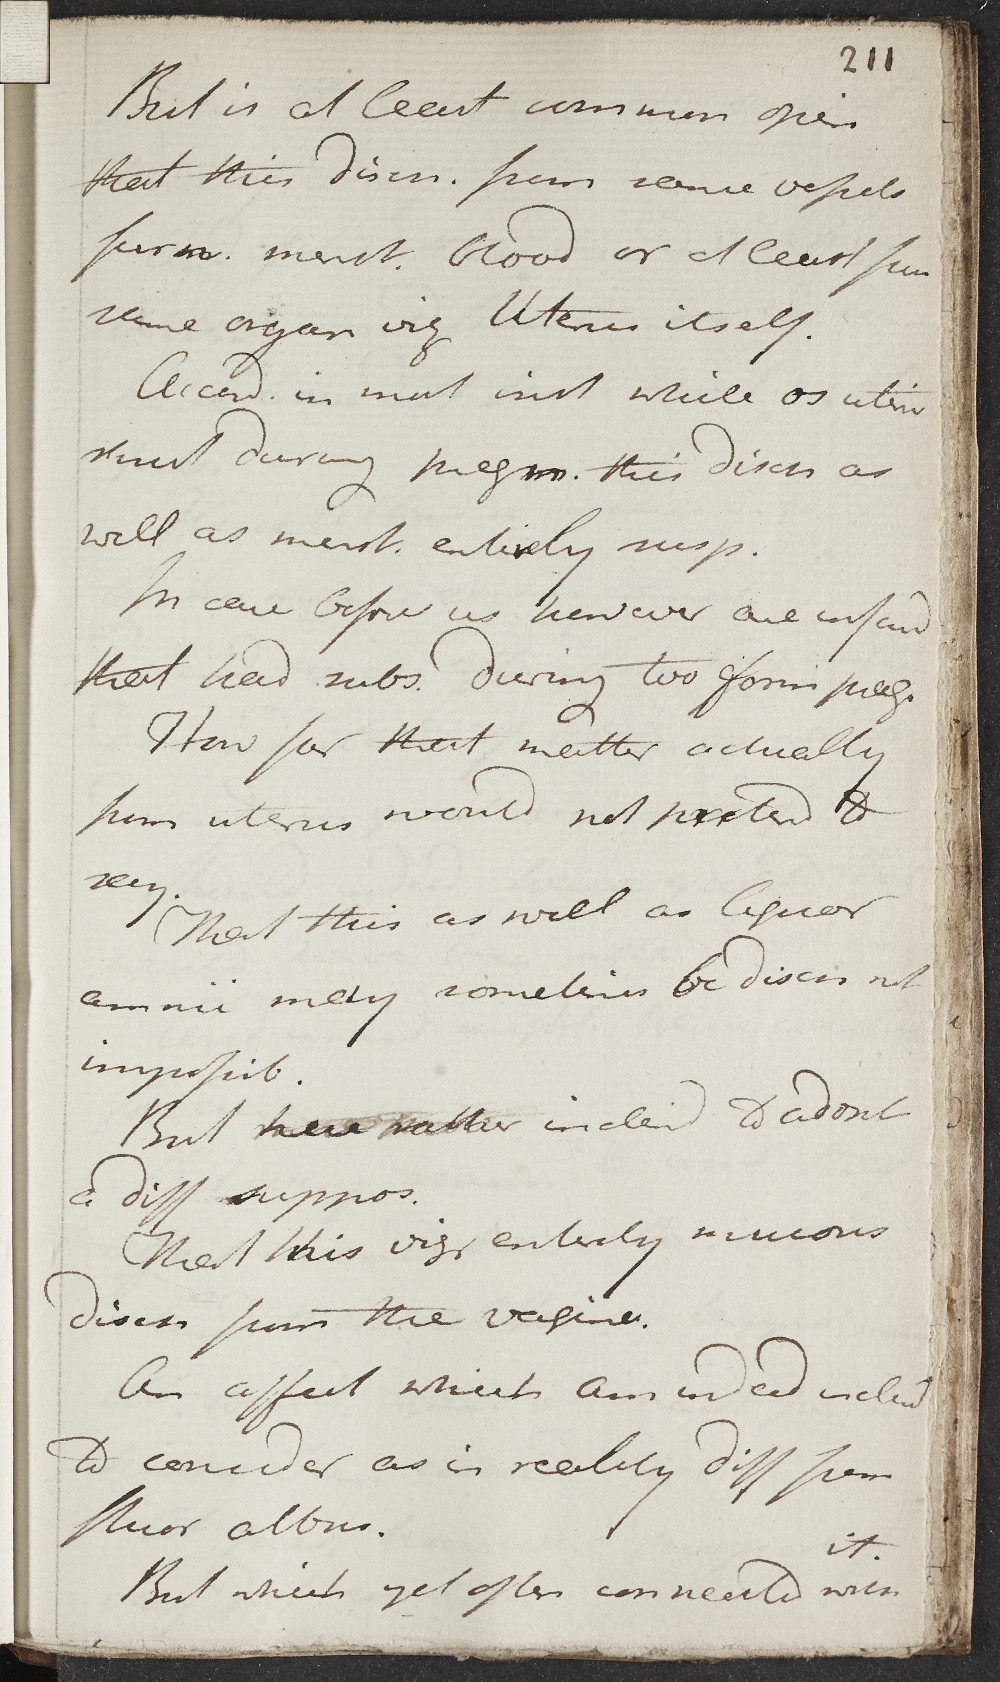 211
But is at least common opin
that this disch. from same vessels
furn. menst. blood or at least from
same organ viz Uterus itself.
Accord. in most inst while os uteri
shut during pregn. this disch as
well as menst. entirely susp.
In case before us however are inford
that had subs. during two form preg.
How far that matter actually
from uterus would not pretend to
say.
That this as well as liquor
amnii may sometimes be disch not
impossib.
But here rather inclind to adopt
a diff suppos.
That this viz. entirely mucous
disch from the vagina.
An affect which am indeed inclind
to consider as in reality diff from
fluor albus.
it.
But which yet often connected with